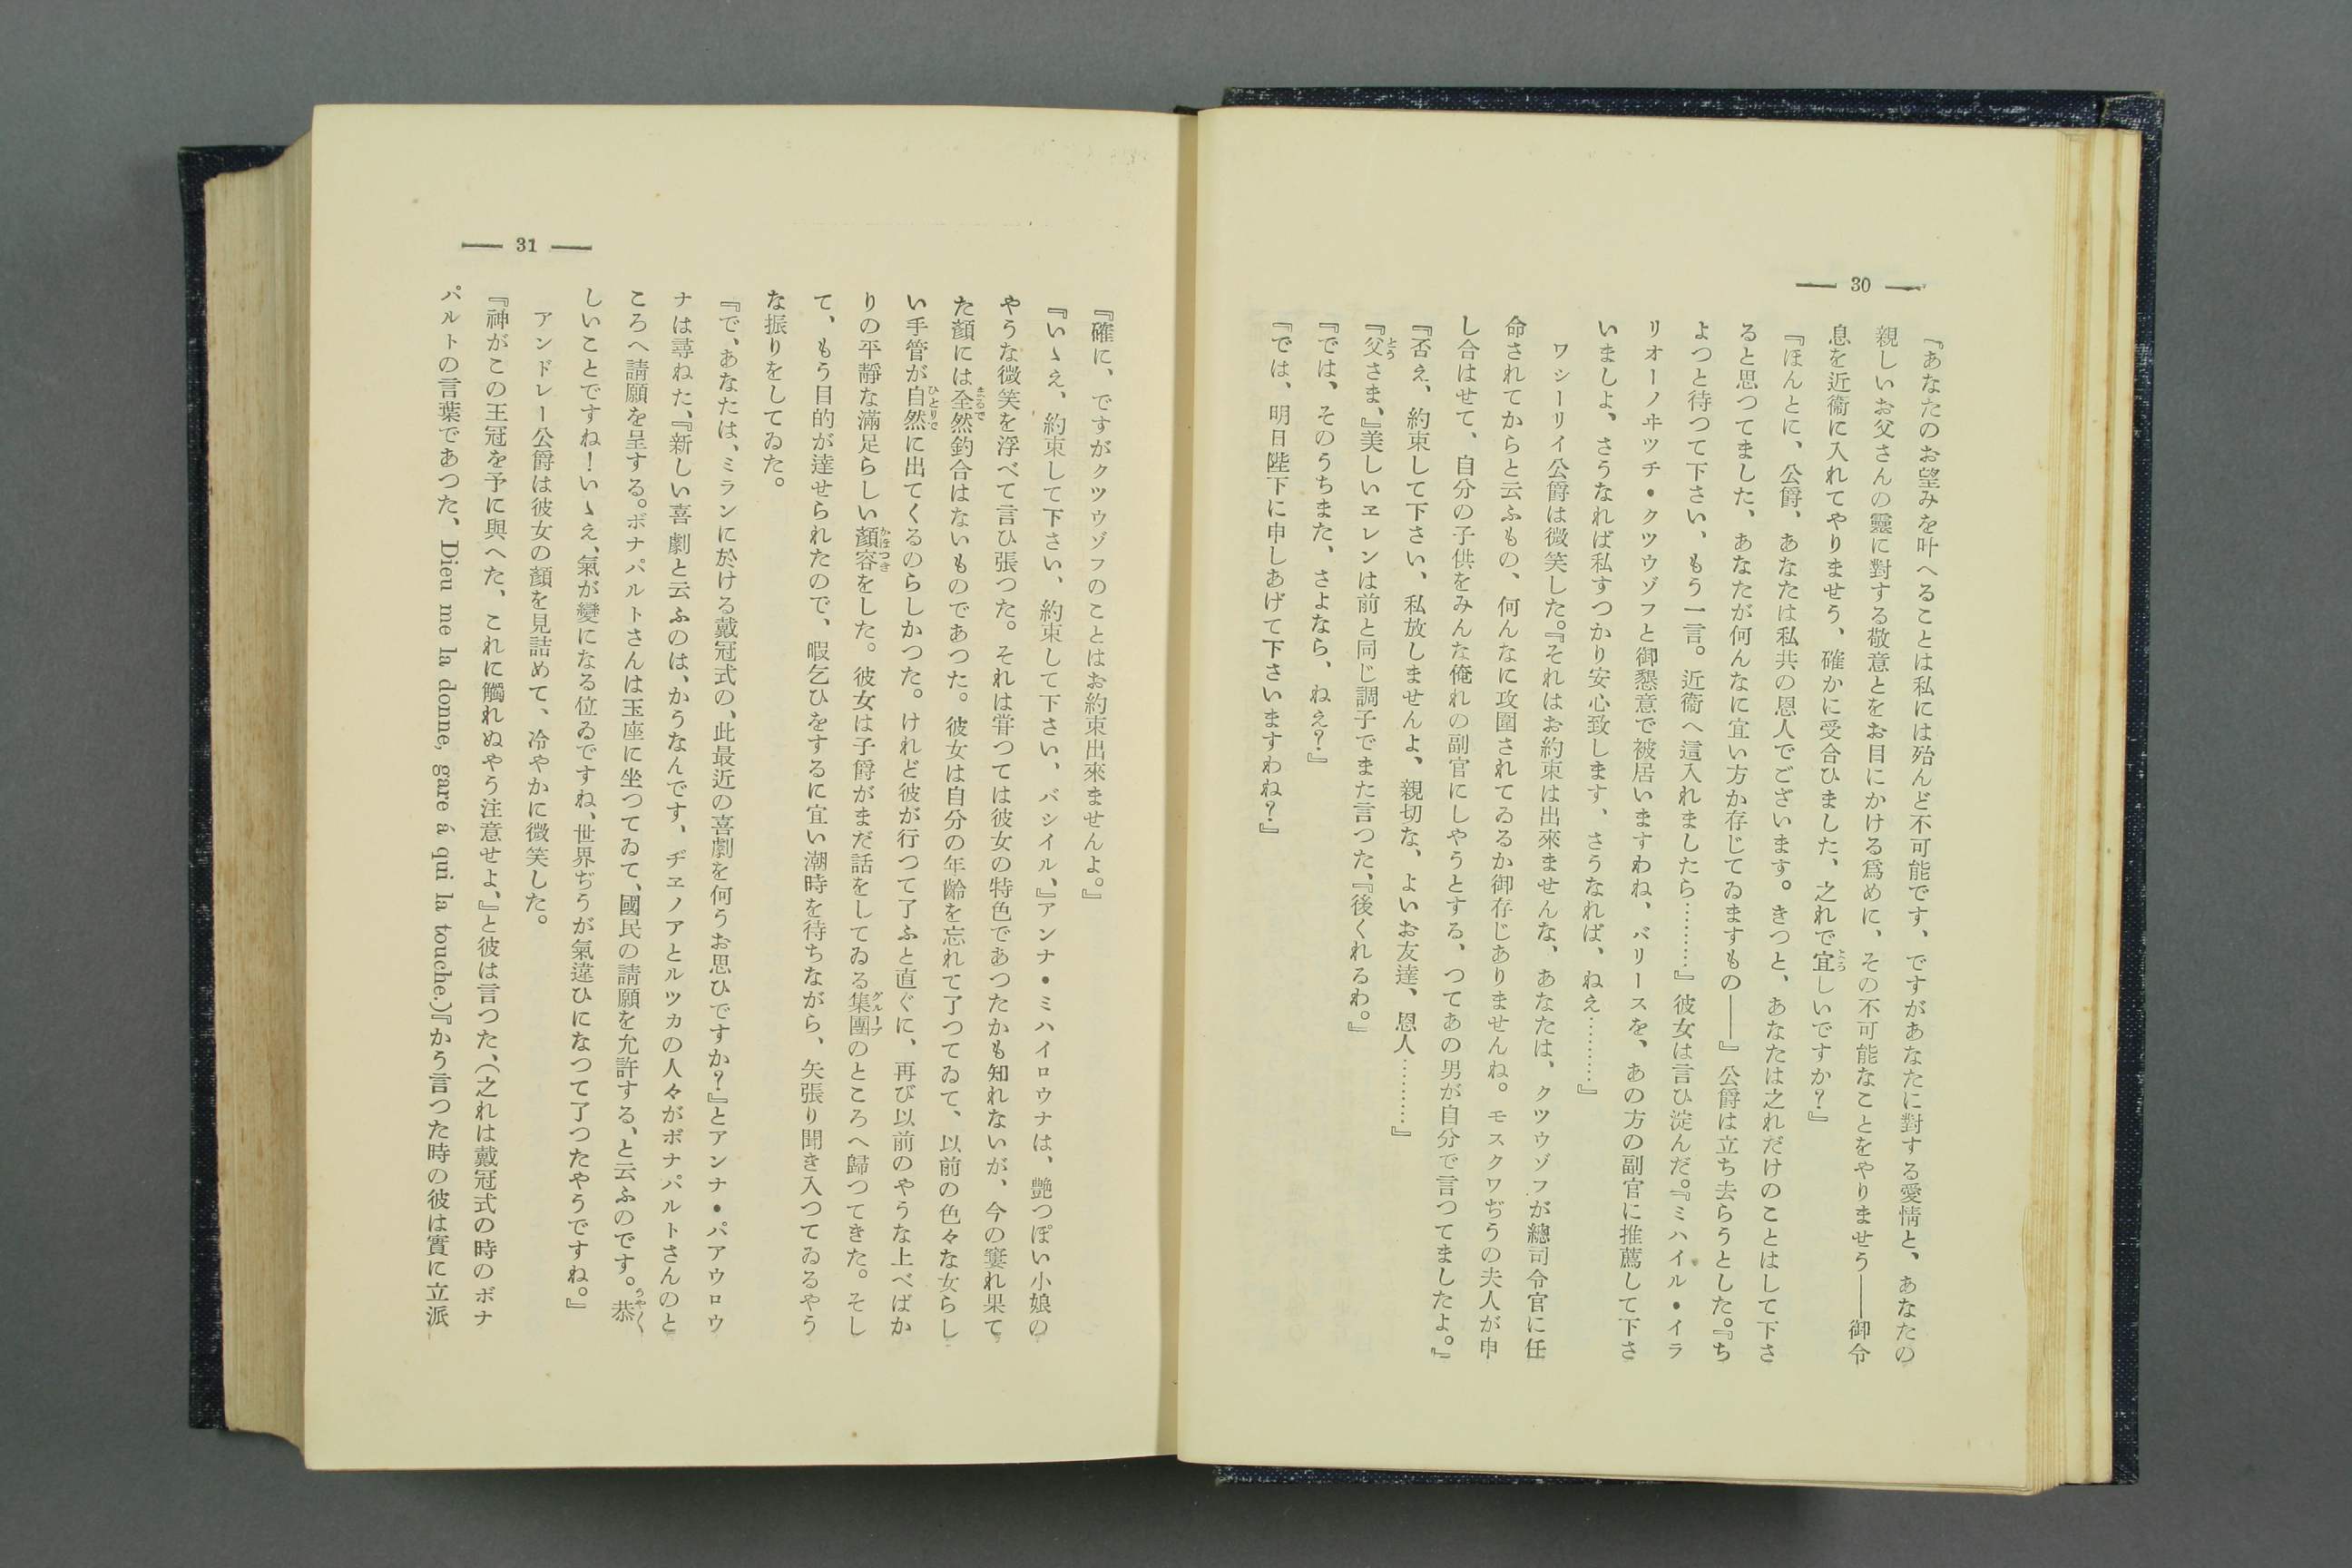 — 30 —
『あなたのお望みを叶へることは私には殆んど不可能です、ですがあなたに對する愛情と、あなたの
親しいお父さんの靈に對する敬意とをお目にかける爲めに、その不可能なことをやりませう――御令
息を近衞に入れてやりませう、確かに受合ひました、之れで宜しいですか？』
『ほんとに、公爵、あなたは私共の恩人でございます。きつと、あなたは之れだけのことはして下さ
ると思つてました、あなたが何んなに宜い方か存じてゐますもの――』公爵は立ち去らうとした。『ち
よつと待つて下さい、もう一言。近衞へ這入れましたら………』彼女は言ひ淀んだ。『ミハイル・イラ
リオーノヰツチ・クツウゾフと御懇意で被居いますわね、バリースを、あの方の副官に推薦して下さ
いましよ、さうなれば私すつかり安心致します、さうなれば、ねえ………』
ワシーリイ公爵は微笑した。『それはお約束は出來ませんな、あなたは、クツウゾフが總司令官に任
命されてからと云ふもの、何んなに攻圍されてゐるか御存じありませんね。モスクワぢうの夫人が申
し合はせて、自分の子供をみんな俺れの副官にしやうとする、つてあの男が自分で言つてましたよ。』
『否え、約束して下さい、私放しませんよ、親切な、よいお友達、恩人………』
『父さま、』美しいヱレンは前と同じ調子でまた言つた、『後くれるわ。』
『では、そのうちまた、さよなら、ねえ？』
『では、明日陛下に申しあげて下さいますわね？』
— 31 —
『確に、ですがクツウゾフのことはお約束出來ませんよ。』
『いゝえ、約束して下さい、約束して下さい、バシイル、』アンナ・ミハイロウナは、艶つぽい小娘の
やうな微笑を浮べて言ひ張つた。それは甞つては彼女の特色であつたかも知れないが、今の窶れ果て
た顏には全然釣合はないものであつた。彼女は自分の年齡を忘れて了つてゐて、以前の色々な女らし
い手管が自然に出てくるのらしかつた。けれど彼が行つて了ふと直ぐに、再び以前のやうな上べばか
りの平靜な滿足らしい顏容をした。彼女は子爵がまだ話をしてゐる集團のところへ歸つてきた。そし
て、もう目的が達せられたので、暇乞ひをするに宜い潮時を待ちながら、矢張り聞き入つてゐるやう
な振りをしてゐた。
『で、あなたは、ミランに於ける戴冠式の、此最近の喜劇を何うお思ひですか？』とアンナ・パアウロウ
ナは尋ねた、『新しい喜劇と云ふのは、かうなんです、ヂヱノアとルツカの人々がボナパルトさんのと
ころへ請願を呈する。ボナパルトさんは玉座に坐つてゐて、國民の請願を允許する、と云ふのです。恭
しいことですね！いゝえ、氣が變になる位ゐですね、世界ぢうが氣違ひになつて了つたやうですね。』
アンドレー公爵は彼女の顏を見詰めて、冷やかに微笑した。
『神がこの王冠を予に與へた、これに觸れぬやう注意せよ、』と彼は言つた、（之れは戴冠式の時のボナ
パルトの言葉であつた、Dieu me la donne, gare á qui la touche.）『かう言つた時の彼は實に立派